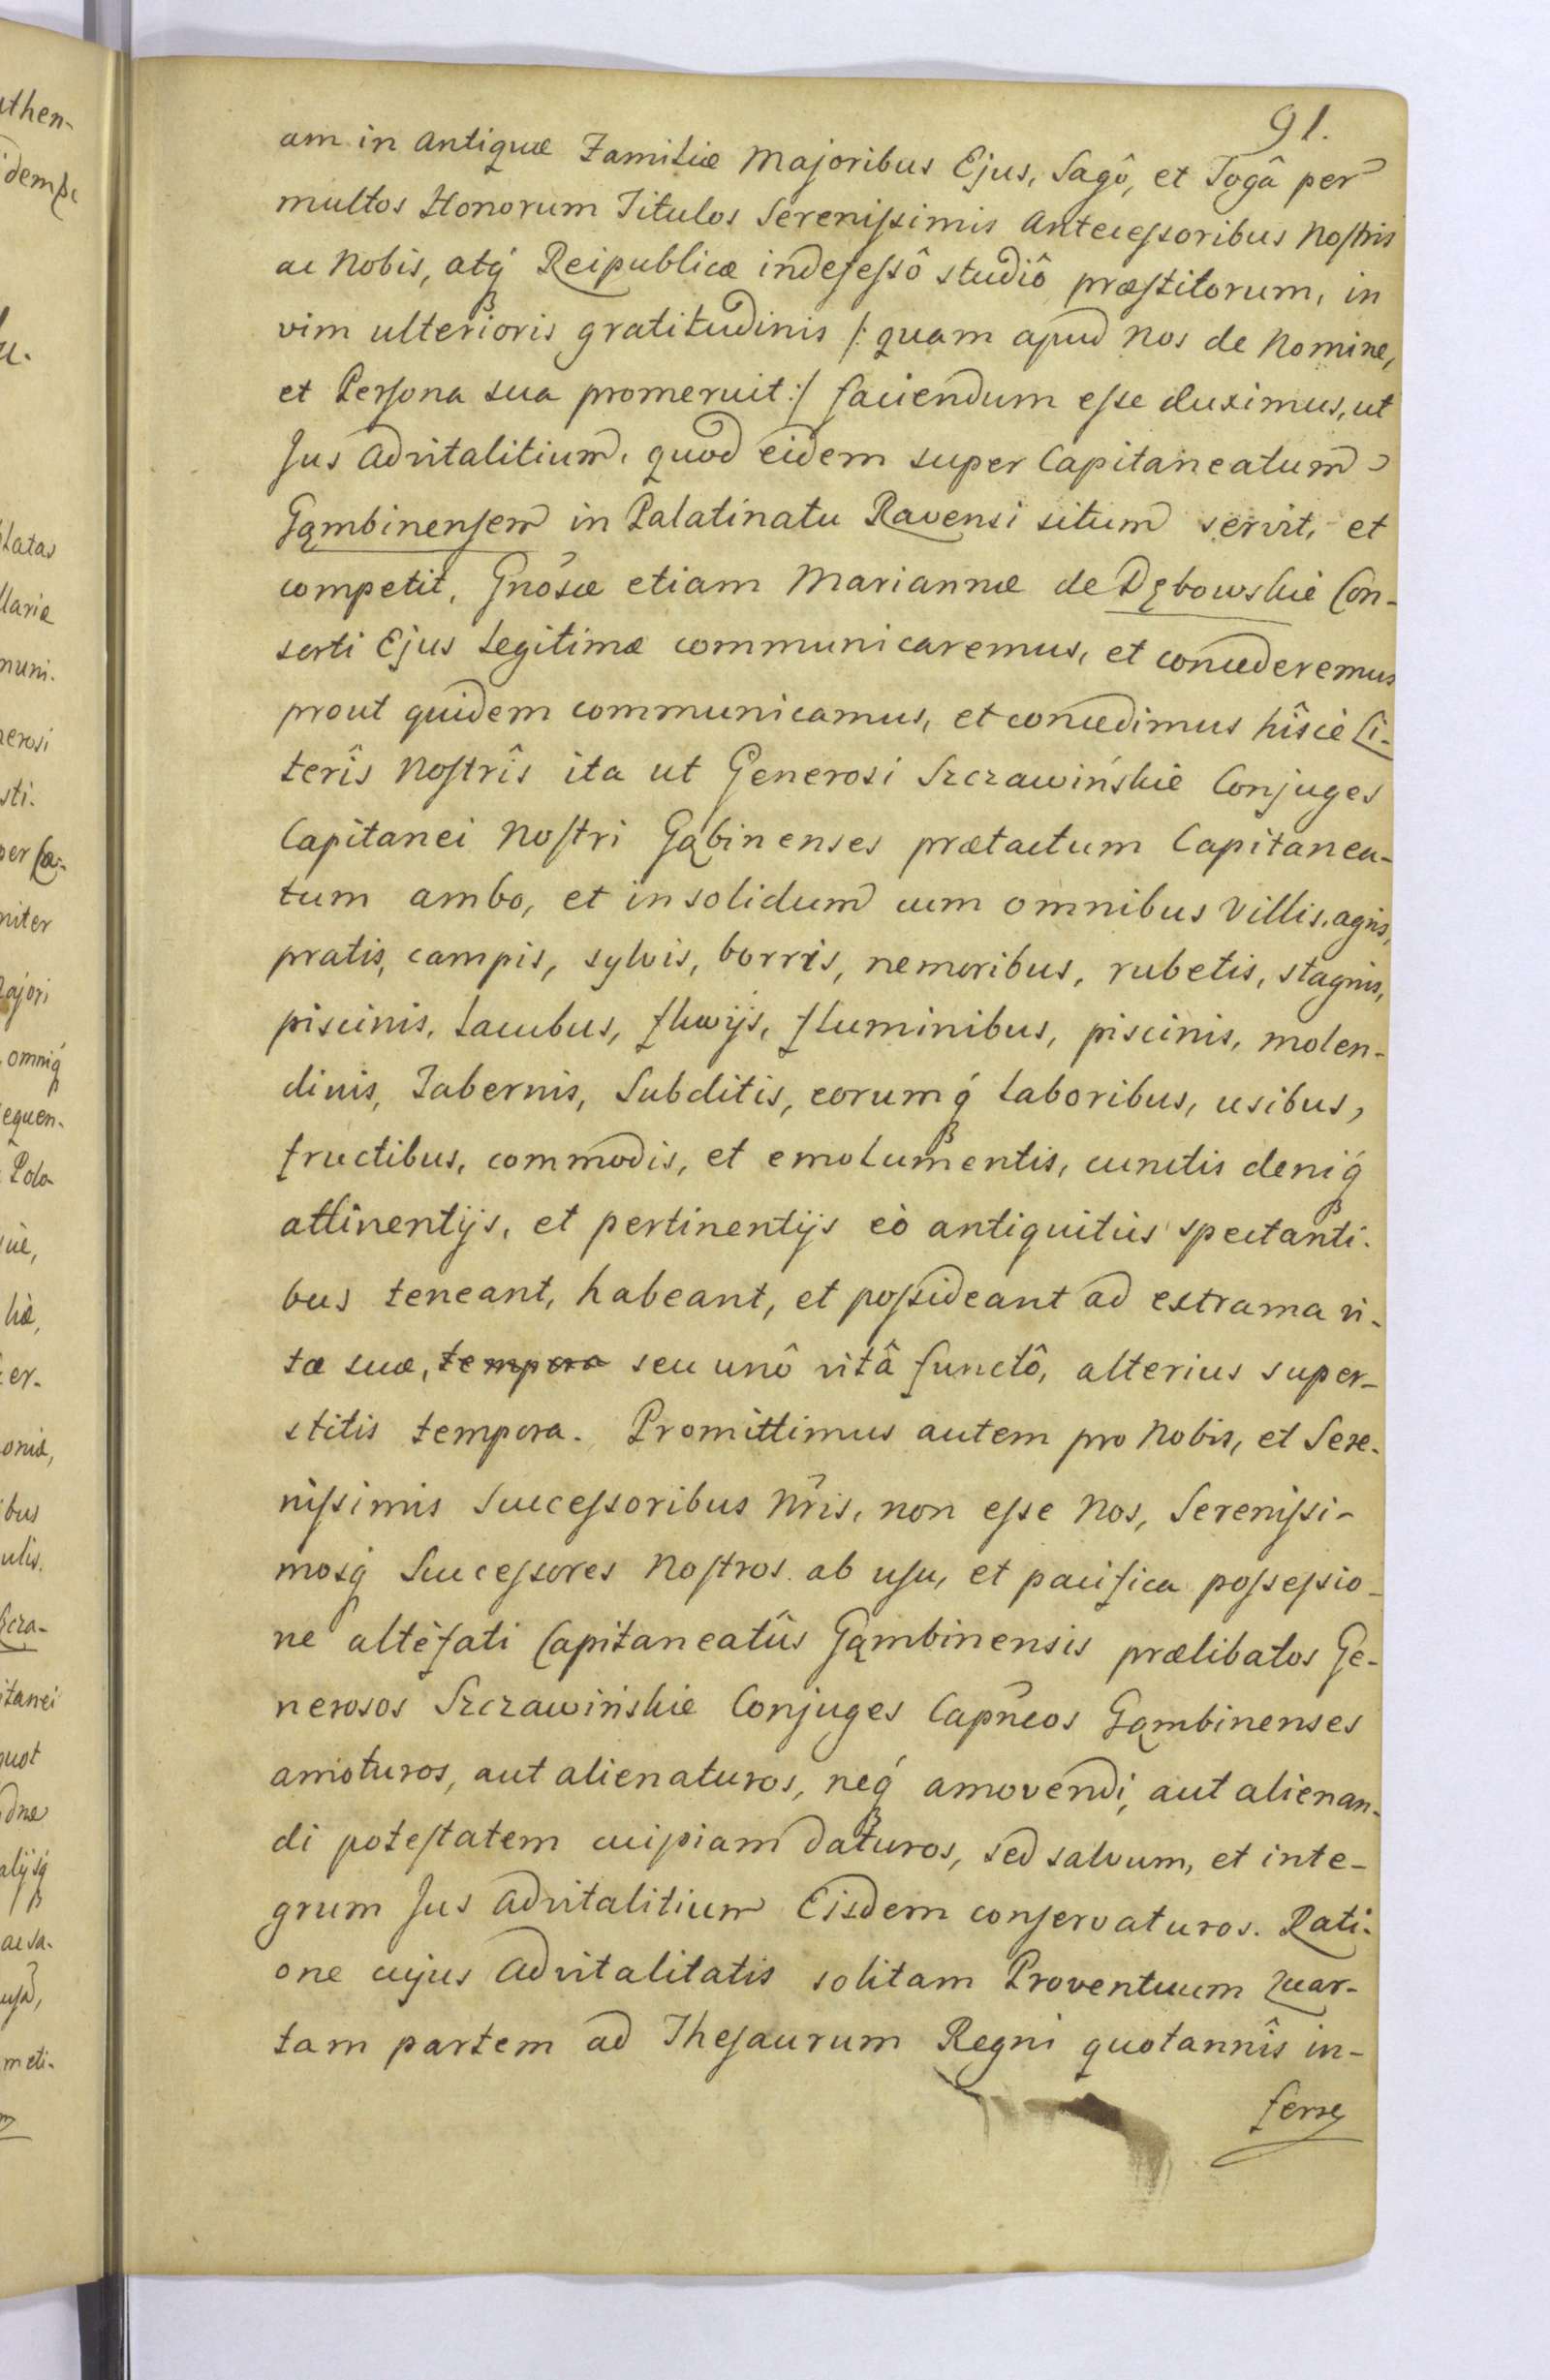 91.
am in antiquæ Familiæ Majoribus Ejus, Sagô, et Togâ per
multos Honorum Titulos Serenissimis Antecessoribus Nostris
ac Nobis, atq́ Reipublicæ indefessô studiô præstitorum, in
vim ulterioris gratitudinis /: quam apud Nos de Nomine,
et Persona sua promeruit :/ faciendum esse duximus, ut
Jus Advitalitium, quod eidem super Capitaneatum
Gąmbinensem in Palatinatu Ravensi situm servit, et
competit, Gnosæ etiam Mariannæ de Dębowskie Con-
sorti Ejus Legitimæ communicaremus, et concederemus
prout quidem communicamus, et concedimus hîsce Li-
terîs Nostrîs ita ut Generosi Szczawińskie Conjuges
Capitanei Nostri Gąbinenses prætactum Capitanea-
tum ambo, et in solidum cum omnibus Villis, agris,
pratis, campis, sylvis, borris, nemoribus, rubetis, stagnis,
piscinis, Lacubus, fluvijs, fluminibus, piscinis, molen-
dinis, Tabernis, Subditis, eorumq́ Laboribus, usibus,
fructibus, commodis, et emolumentis, cunctis deniq́
attinentijs, et pertinentijs eò antiquitùs spectanti-
bus teneant, habeant, et possideant ad extrama vi-
tæ suæ, tempora seu unô vitâ functô, alterius super-
stitis tempora. Promittimus autem pro Nobis, et Sere-
nissimis Successoribus Nr̃is, non esse Nos, Serenissi-
mosq́ Successores Nostros ab usu, et pacifica possessio-
ne altèfati Capitaneatûs Gąmbinensis prælibatos Ge-
nerosos Szczawińskie Conjuges Capñeos Gąmbinenses
amoturos, aut alienaturos, neq́ amovendi, aut alienan-
di potestatem cuipiam daturos, sed salvum, et inte-
grum Jus Advitalitium Eisdem conservaturos. Rati-
one cujus Advitalitatis solitam Proventuum quar-
tam partem ad Thesaurum Regni quotannîs in-
ferre